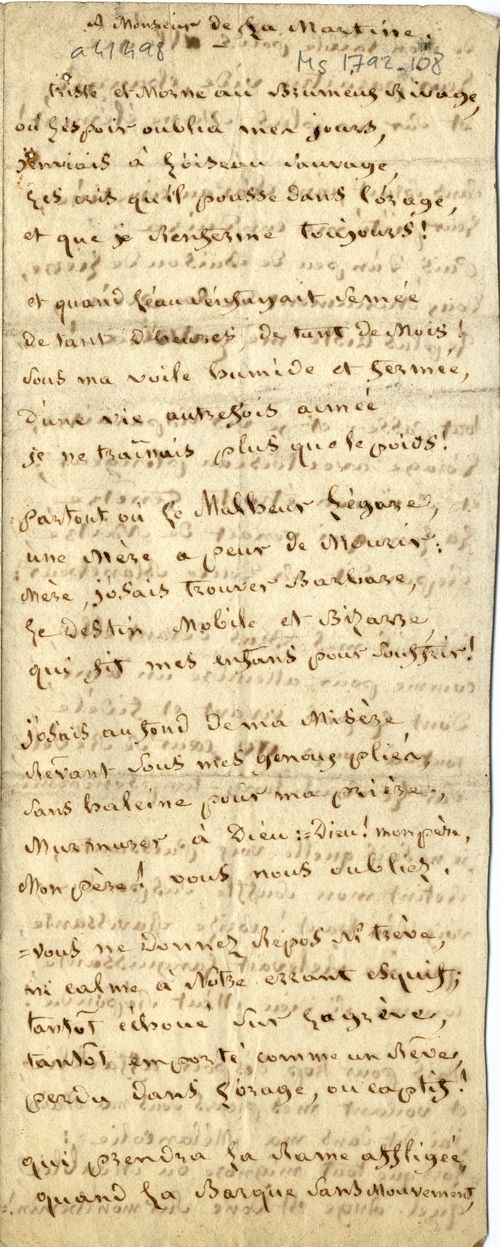 A Monsieur de La Martine.
a 41498
Ms 1792-108
triste et Morne au Brumeux Rivage,
où L'éspoir oublia mes jours,
J'enviais à L'oiseau sauvage,
Les cris qu'il pousse dans l'orage,
et que je Renferme toujours !
et quand L'éau s'enfuyait semée
de tant d'heures de tant de Mois !
sous ma voile humide et fermée,
d'une vie autrefois aimée
je ne traînais plus que le poids !
partout où Le Malheur L'égare,
une Mère a peur de Mourir :
Mère, j'osais trouver Barbare,
Le destin Mobile et Bizarre,
qui fit mes enfans pour souffrir !
j'osais au fond de ma Misère
Rêvant sous mes genoux pliés,
sans haleine pour ma prière,
Murmurer à Dieu := Dieu ! mon père,
Mon père ! vous nous oubliez.
=vous ne donnez Repos Ni trève,
ni calme à Notre errant esquif;
tantôt échoué sur La grève,
tantôt emporté comme un Rêve,
perdu dans L'orage, ou captif !
qui prendra La Rame affligée,
quand La Barque sans Mouvement,